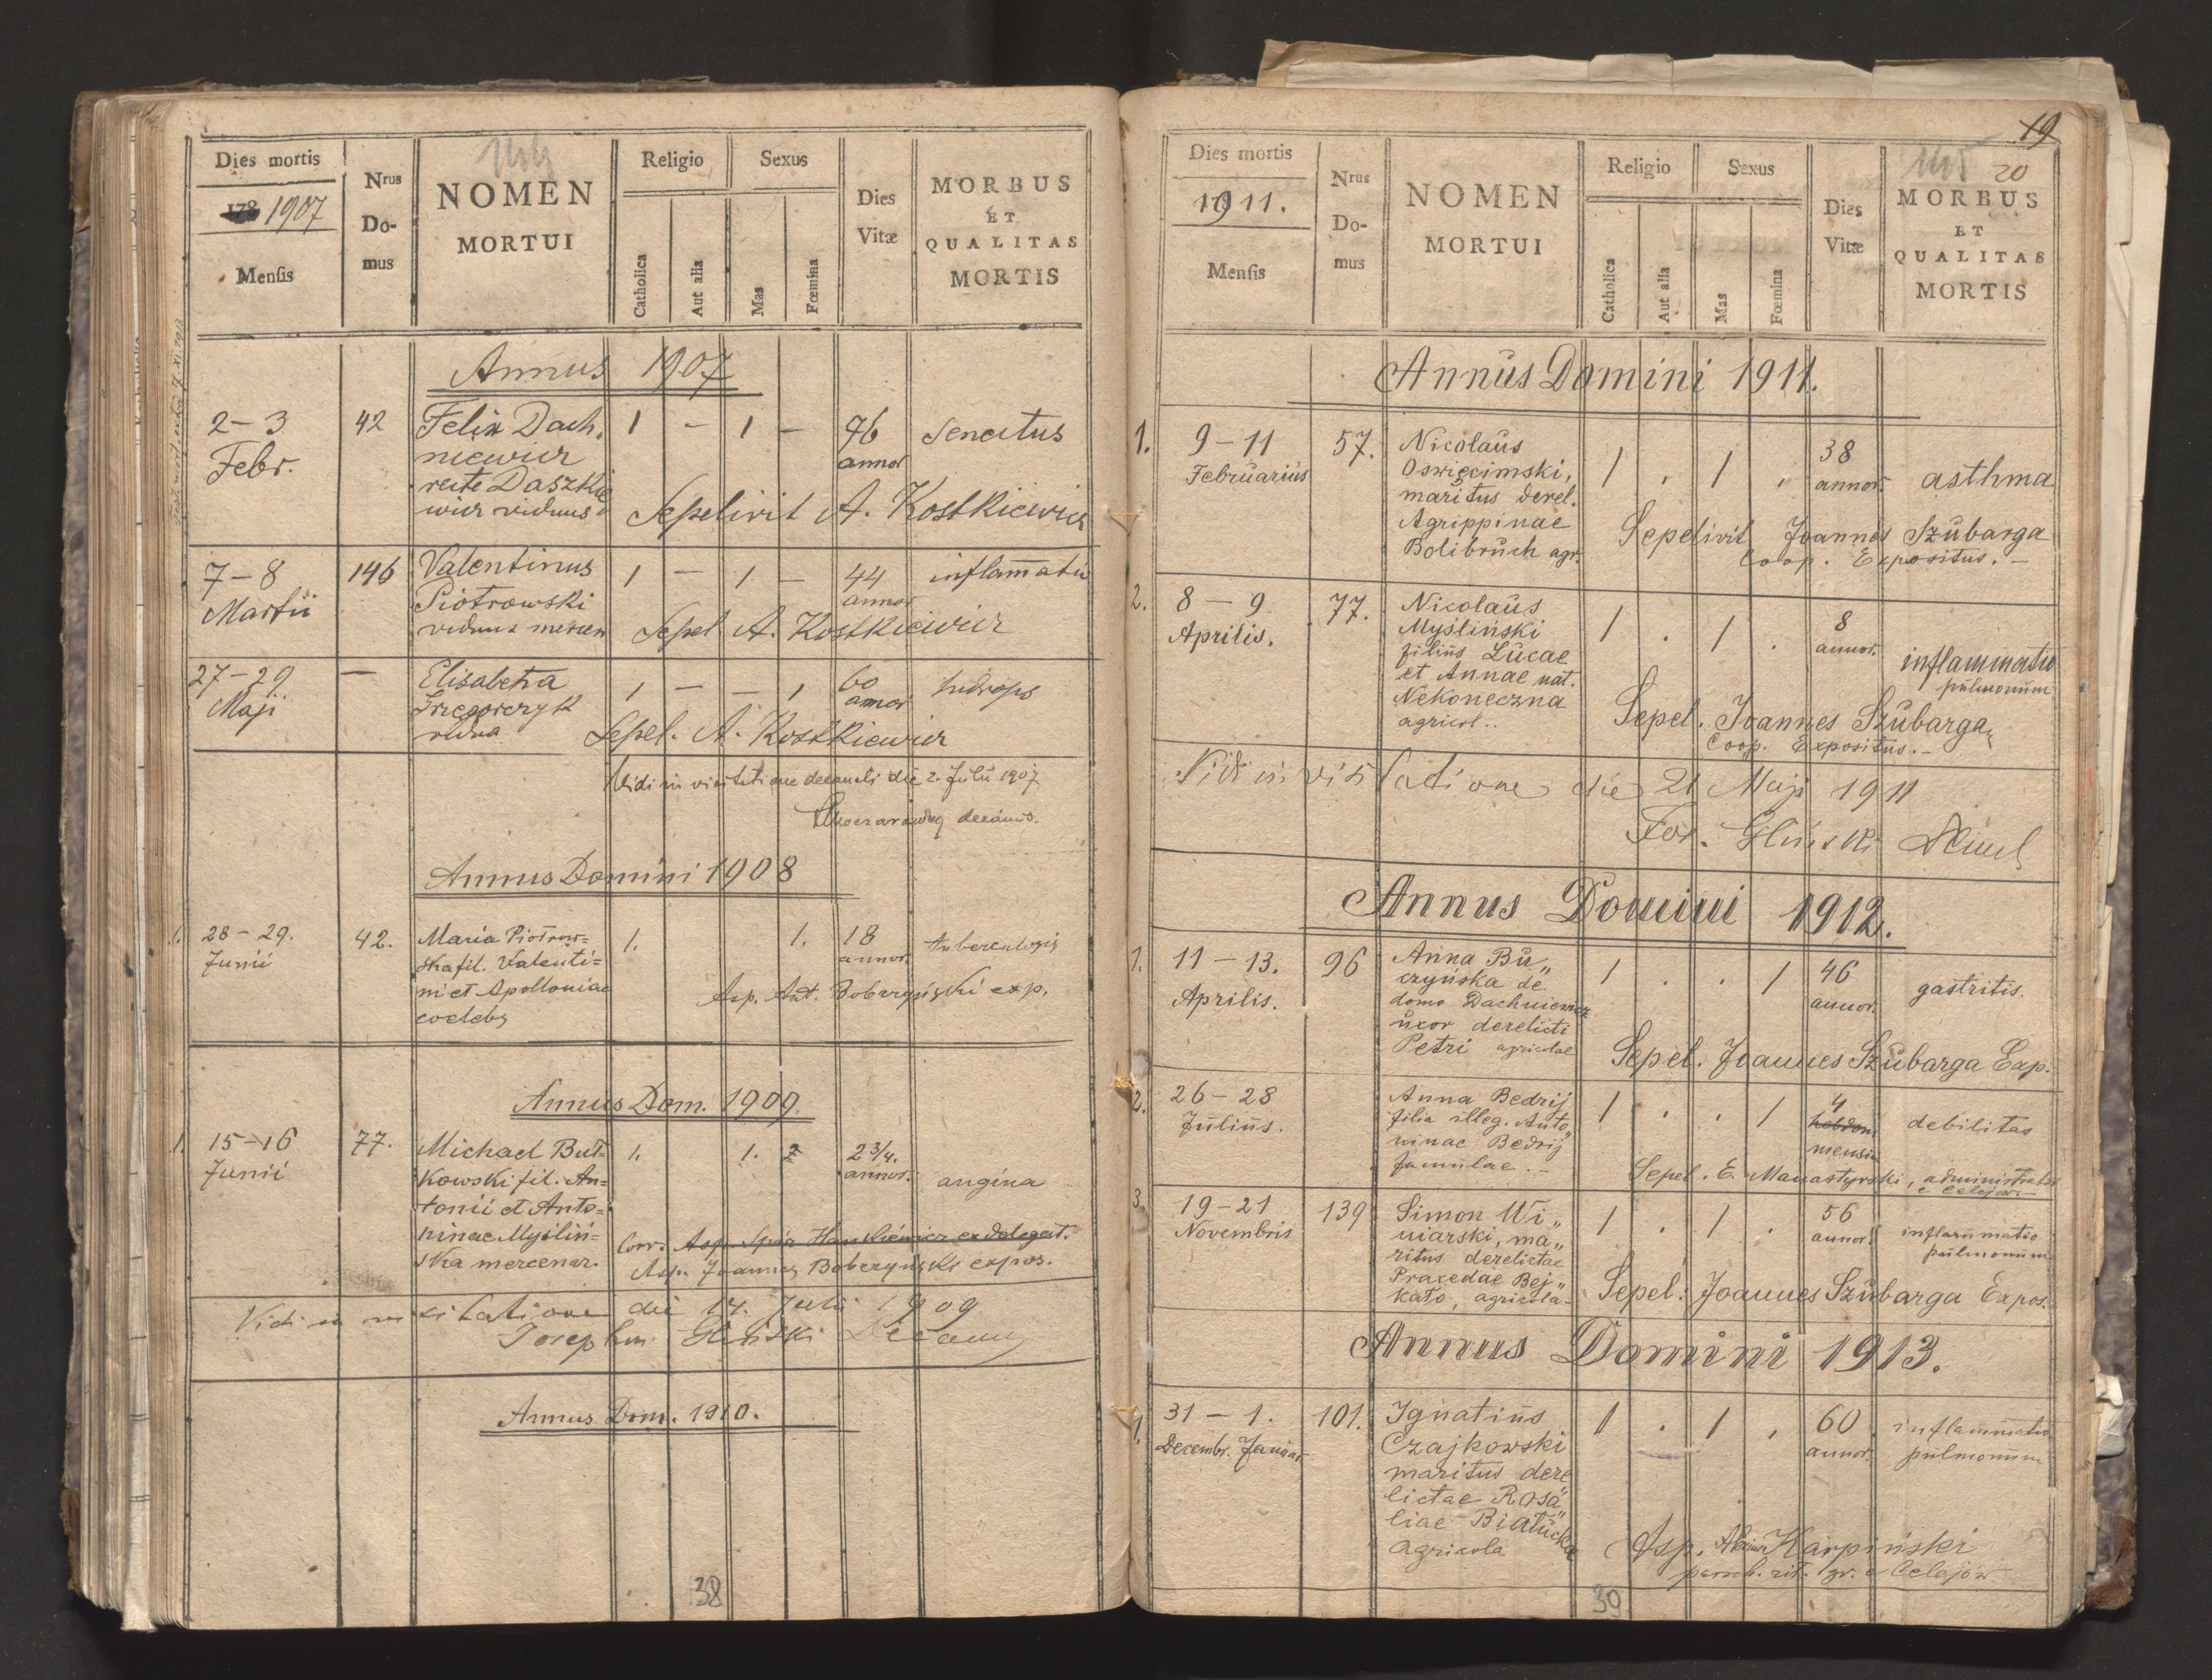 144
Dies mortis
178 1907
Mensis
Nrus
Do-
mus
NOMEN
MORTUI
Religio
Catholica
Aut alia
Sexus
Mas
Fœmina
Dies
Vitæ
MORBUS
ET
QUALITAS
MORTIS
Annus 1907
2-3 42 Felix Dach, 1 - 1 - 76 senectus
Febr. niewicz annor
recte Daszkie
wicz viduus Sepelivit A. Kostkiewicz
7-8 146 Valentinus 1 - 1 - 44 inflamatio
Martii Piotrowski annor
viduus mercen Sepel A. Kostkiewicz
27-29 - Elisabetha 1 - - 1 60 hidrops
Maji Grzegorczyk annor
vidua Sepel. A. Kostkiewicz
Vidi in visitatione decanali die 2. Julii 1907
decanus.
Annus Domini 1908
1. 28-29. 42. Maria Piotrow= 1. 1. 18 tuberculosis
Junii ska fil. Valenti= annor.
ni et Apolloniae Asp. Ant. Boberzyński exp.
coelebs
Annus Dom. 1909.
1. 15-16 77. Michael But= 1. 1. 2 3/4.
Junii kowski fil. An= annor. angina
tonii et Anto=
ninae Myśliń= Coop. Asp. Hankiewicz ex delegat.
ska mercenar. Asp. Joannes Boberzyński expos.
Vidi in visitatione die 14. Julii 1909
Josephus Gliński Decanus
Annus Dom. 1910.
38
19
145 20
Dies mortis
1911.
Mensis
Nrus
Do-
mus
NOMEN
MORTUI
Religio
Catholica
Aut alia
Sexus
Mas
Fœmina
Dies
Vitæ
MORBUS
ET
QUALITAS
MORTIS
Annus Domini 1911.
1. 9-11 57. Nicolaus 1 . 1 . 38 asthma
Februarius Oswięcimski, annor.
maritus derel.
Agrippinae Sepelivit Joannes Szubarga
Bolibruch agr. Coop. Expositus.-
2. 8-9 77. Nicolaus 1 . 1 . 8
Aprilis. Myśliński annor.
filius Lucae inflammatio
et Annae nat. pulmonum
Nekoneczna Sepel. Joannes Szubarga
agricol.. Coop. Expositus.-
Vidi in visitatione die 21 Maji 1911
Jos. Gliński
Annus Domini 1912.
1. 11-13. 96 Anna Bu„ 1 . . 1 46 gastritis.
Aprilis. czyńska de annor.
domo Dachniewicz
uxor derelicti
Petri agricolae Sepel. Joannes Szubarga Exp.
2. 26-28 Anna Bedrij 1 . . 1 4 debilitas
Julius. filia illeg. Anto„ hebdom
ninae Bedrij mensium
famulae.- Sepel. E. Manastyrski, administrator
e Celejów-
3. 19-21 139 Simon Wi„ 1 . 1 . 56 inflammatio
Novembris niarski, ma„ annor. pulmonum
ritus derelictae
Praxedae Bej„
kato, agricola- Sepel. Joannes Szubarga Expos.
Annus Domini 1913.
1. 31-1. 101. Ignatius 1 . 1 . 60 inflammatio
Decembr. Januar Czajkowski annor. pulmonum
maritus dere
lictae Rosa„
liae Białucka
agricola Asp. Karpiński
paroch. rit. gr. e Celejów
39